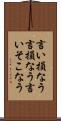 言い損なう
言損なう言
いそこなう